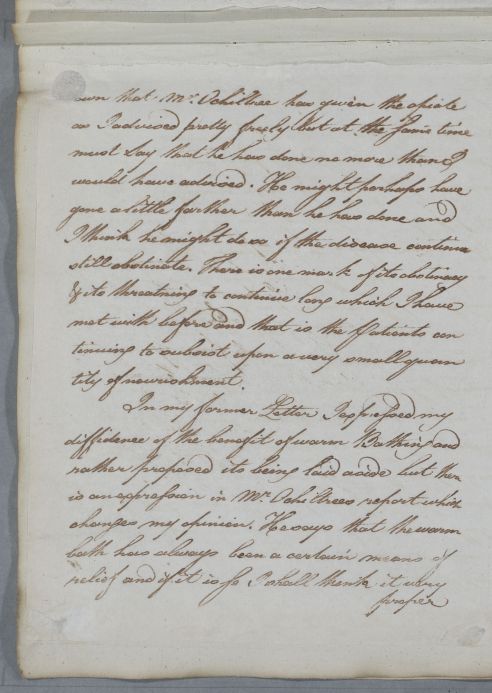 own that Mr. Ochiltree has given the opiate
as I advised pretty freely but at the same time
must say that he has done no more than I
would have advised. He might perhaps have
gone a little farther than he has done and
I think he might do so if the disease continue
still obstinate. There is one mark of its obstinacy
& its threatning to continue long which I have
met with before and that is the Patients con
tinuing to subsist upon a very small quan
tity of nourishment.
In my former Letter I expressed my
diffidence of the benefit of warm Bathing and
rather proposed its being laid aside but there
is an expression in Mr. Ochiltrees report which
changes my opinion. He says that the warm
bath has always been a certain means of
relief and if it is so I shall think it very
proper